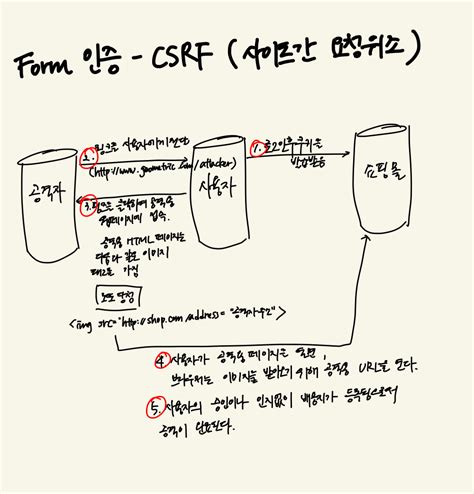 Form 인증 - CSRF (사이트간 요청위조)
2. 링크를 사용자에게 전달
(http://www.geometric.com/attacker)
1. 로그인 후 쿠키를
발급받음
공격자
사용자
쇼핑몰
3. 링크를 클릭하여 공격용
웹페이지에 접속.
공격용 HTML 페이지는
다음과 같은 이미지
태그를 가짐
로또 당첨
<img src="http://shop.com/address="공격자주소">
4. 사용자가 공격용 페이지를 열면,
브라우저는 이미지를 받아오기 위해 공격용 URL을 연다.
5. 사용자의 승인이나 인지없이 배송지가 등록됨으로써
공격이 완료된다.